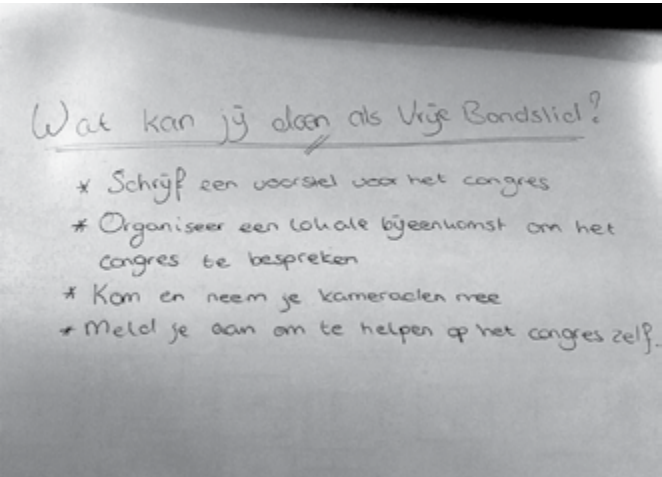 Wat kan jij doen als Vrije Bondslid?
* Schrijf een voorstel voor het congres
* Organiseer een lokale bijeenkomst om het
congres te bespreken
* Kom en neem je kameraden mee
* Meld je aan om te helpen op het congres zelf.